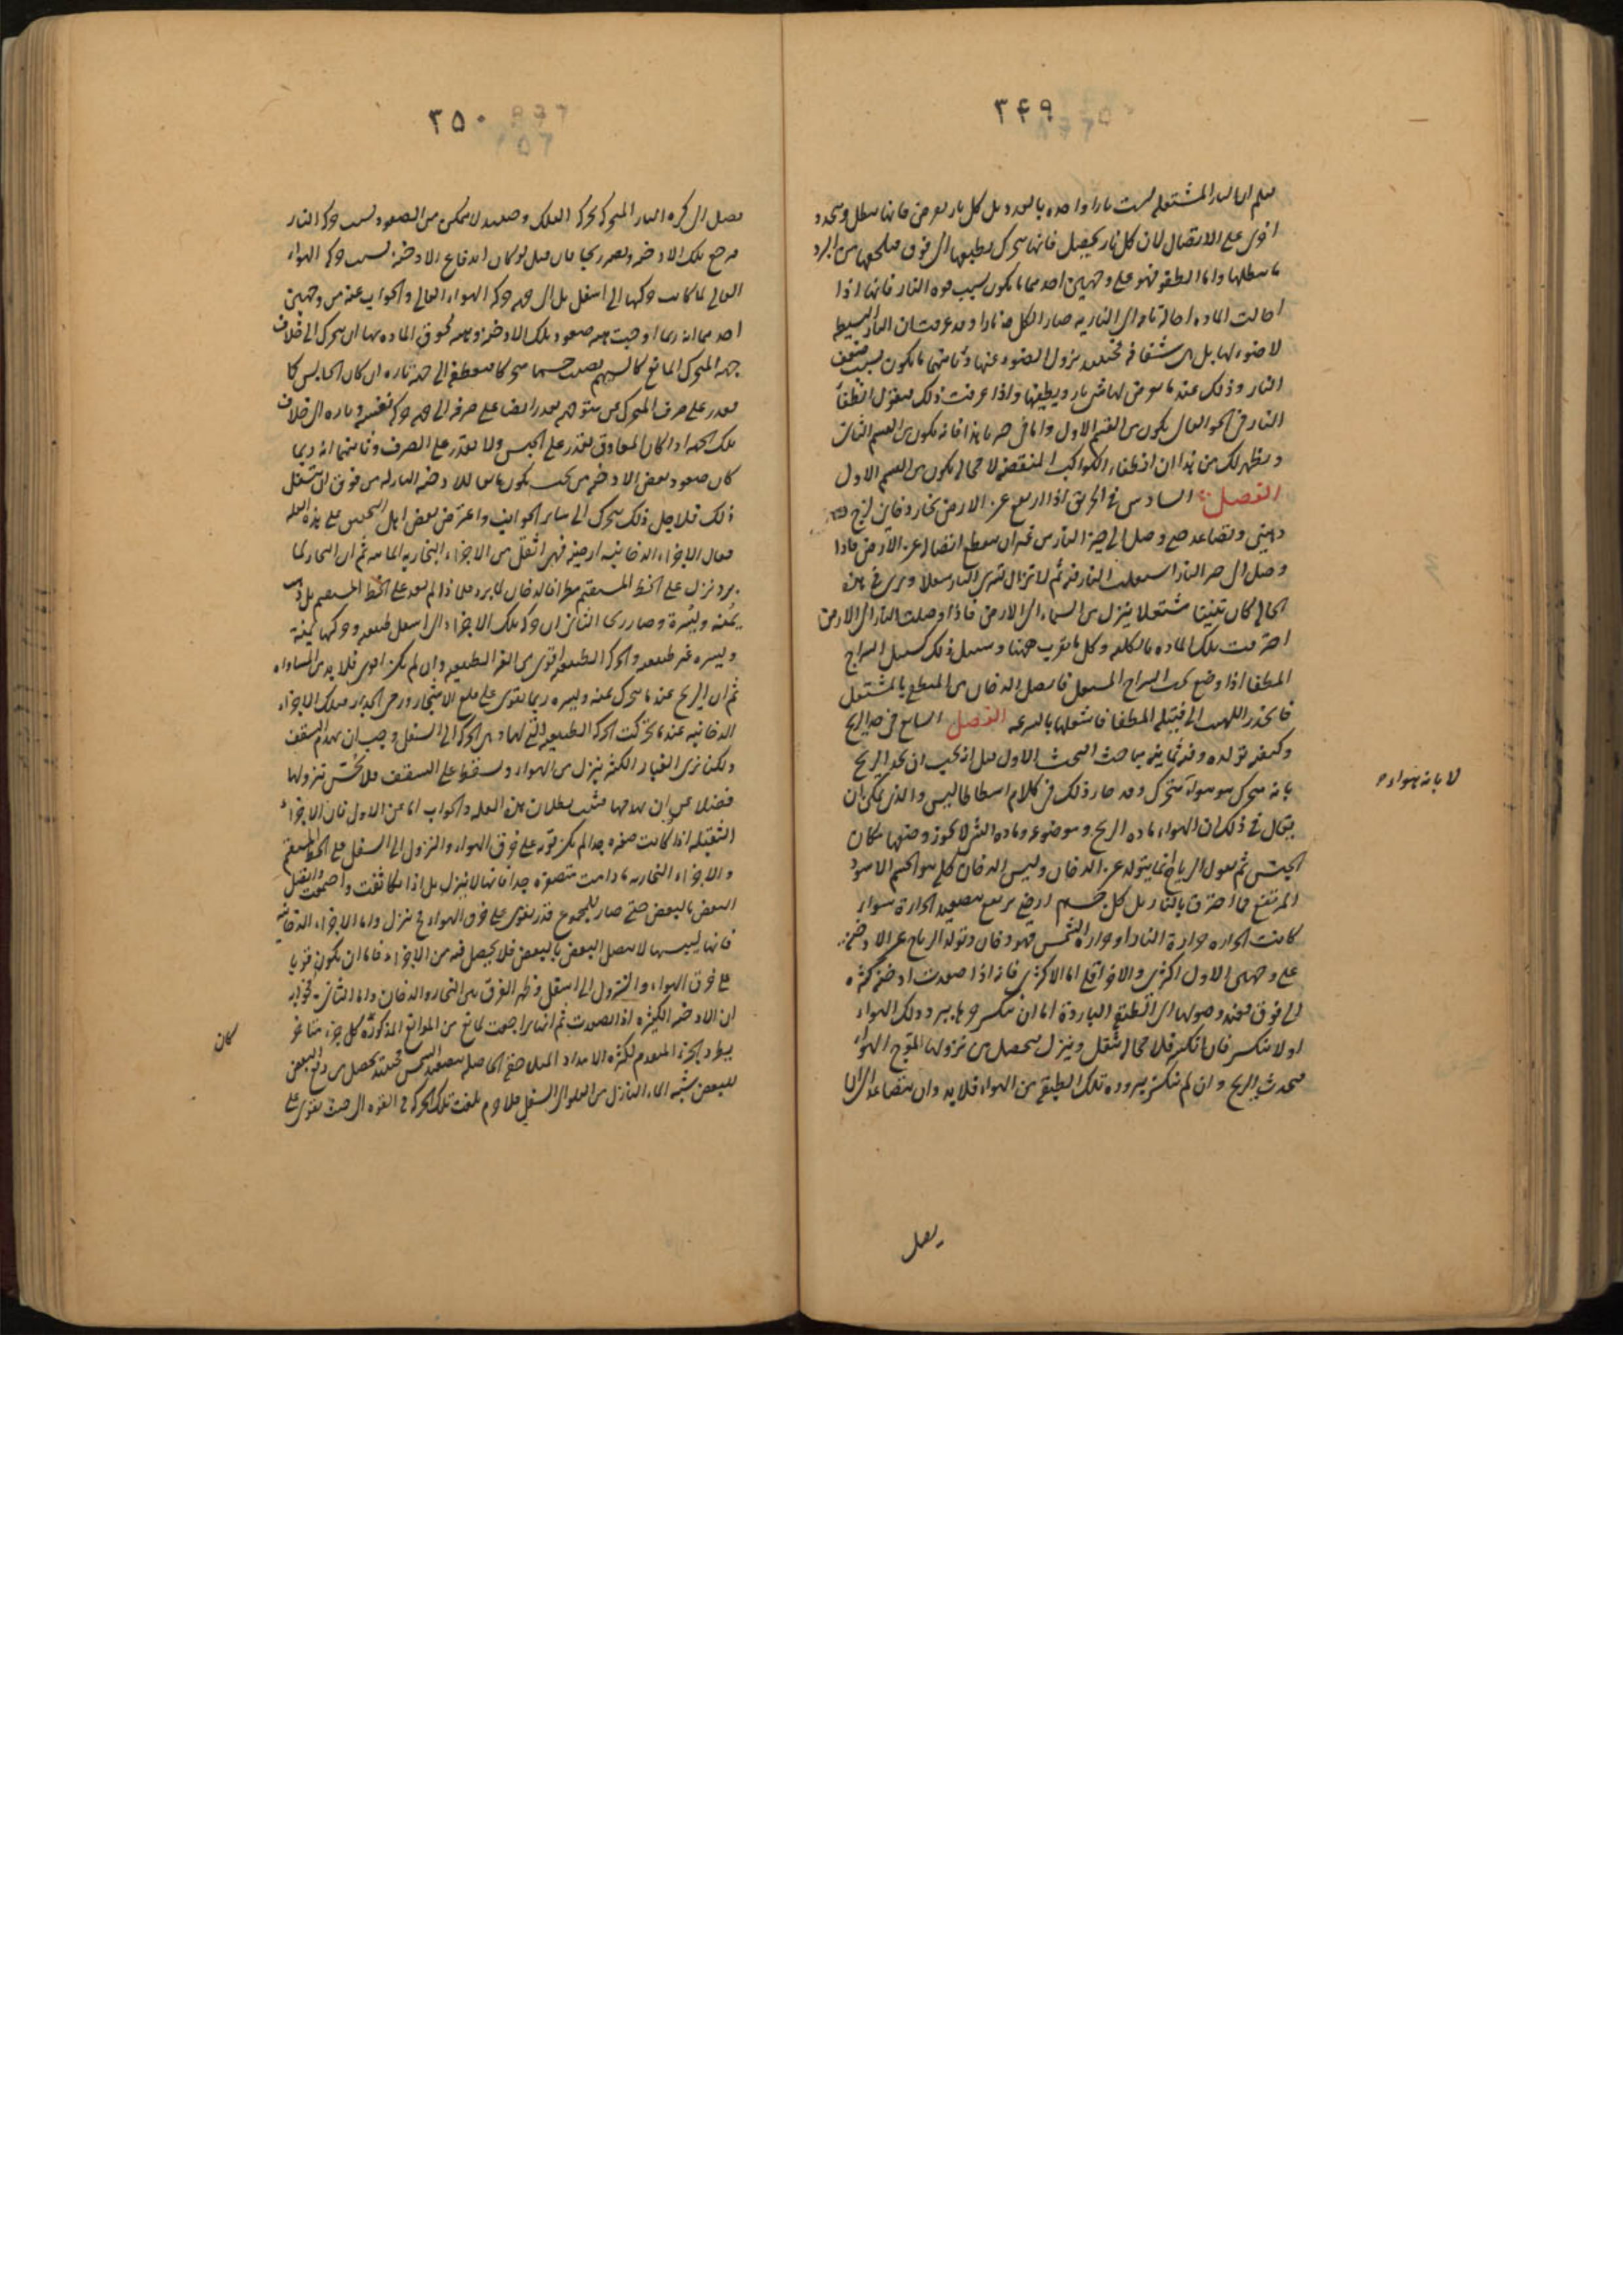 ٣۴٩
ليعلم ان النار المشتعلة ليست نارا واحدة بالعدد بل كل نار تعرض فانها تبطل ويتجدد
اخرى على الاتصال لان كل نار يحصل فانها تتحرك بطبعها الى فوق فيلحقها من البرد
ما يبطلها واما الطفو فهو على وجهين احدهما ما يكون بسبب قوة النار فانها اذا
احالت المادة احالة تامة الى النارية صار الكل نارا وقد عرفت ان النار البسيطة
لا ضوء لها بل هى شفافة فحينئذ يزول الضوء عنها وثانيهما ما يكون بسبب ضعف
النار وذلك عند ما يعرض لها مثل بارد ويطفيها واذا عرفت ذلك فنقول انطفاء
النار فى الجو العالى يكون من القسم الاول واما فى حيزنا هذا فانه يكون من القسم الثانى
ويظهر لك من هذا ان انطفاء الكواكب المنقضة لا محالة يكون من القسم الاول
الفصل السادس فى الحريق اذا ارتفع عن الارض بخار دخانى لزج
دهنى وتصاعد حتى وصل الى حيز النار من غير ان ينقطع اتصاله عن الارض فاذا
وصل الى حيز النار اشتعلت النار فيه ثم لا تزال تسرى النار سفلا ويرى فى هذه
الحالة كان تنينا مشتعلا ينزل من السماء الى الارض فاذا وصلت النار الى الارض
احترقت تلك المادة بالكلية وكل ما يقرب منها وسبيل ذلك سبيل السراج
المطفا اذا وضع تحت السراج المشتعل فاتصل الدخان من المنطفى بالمشتعل
فانحدر اللهب الى فتيلة المطفا فاشعلها بالسرعة الفصل السابع فى حد الريح
وكيفية تولده وفيه ثمانية مباحث البحث الاول قيل انه يجب ان يحد الريح
بانه متحرك هو هواء يتحرك وقد صار ذلك فى كلام ارسطاطاليس والذى يمكن ان
يقال فى ذلك ان الهواء مادة الريح وموضوعه ومادة الشئ لا يجوز وضعها مكان
الجنس ثم نقول الرياح انما يتولد عن الدخان وليس الدخان كله هو الجسم الاسود
المرتفع مما احترق بالنار بل كل جسم ارضى يرتفع بتصعيد الحرارة سواء
كانت الحرارة حرارة النار او حرارة الشمس فهو دخان وتولد الرياح عن الادخنة
على وجهين الاول اكثرى والاخر اقلى اما الاكثرى فانه اذا صعدت ادخنة كثيرة
الى فوق فعند وصولها الى الطبقة الباردة اما ان ينكسر حرها ببرد ذلك الهواء
او لا ينكسر فان انكسر فلا محالة يثقل وينزل فيحصل من نزولها تموج الهواء
فيحدث الريح وان لم ينكسر ببرودة تلك الطبقة من الهواء فلا بد وان يتصاعد الى ان
يصل
لا بانه هواء
٣۵٠
يصل الى كرة النار المتحركة بحركة الفلك وحينئذ لا يتمكن من الصعود بسبب حركة النار
فيرجع تلك الادخنة ويصير ريحا فان قيل لو كان اندفاع الادخنة بسبب حركة الهواء
العالى لما كانت حركتها الى اسفل بل الى جهة حركة الهواء العالى والجواب عنه من وجهين
احدهما انه ربما اوجبت هيئة صعود تلك الادخنة وهيئة لحوق المادة بها ان يتحرك الى خلاف
جهة المتحرك المانع كالسهم يصيب جسما متحركا فينعطف الى جهته تارة ان كان الحابس كما
يقدر على صرف المتحرك عن متوجهه يقدر ايضا على صرفه الى جهة حركة نفسه وتارة الى خلاف
تلك الجهة اذا كان المعاوق يقدر على الحبس ولا يقدر على الصرف وثانيهما انه ربما
كان صعود بعض الادخنة من تحت يكون مانعا للادخنة النازلة من فوق الى تسفل
ذلك فلاجل ذلك يتحرك الى سائر الجوانب واعترض بعض اهل التحصيل على هذه العلة
فقال الاجزاء الدخانية ارضية فهى اثقل من الاجزاء البخارية المائية ثم ان البخار لما
برد نزل على الخط المستقيم مطرا فالدخان لما برد فلما ذا لم ينزل على الخط المستقيم بل ذهب
يمنة ويسرة وصار ريحا الثانى ان حركة تلك الاجزاء الى اسفل طبيعية وحركتها يمنة
ويسرة غير طبيعية والحركة الطبيعية اقوى من الغير الطبيعية وان لم تكن اقوى فلا بد من المساواة
ثم ان الريح عند ما يتحرك يمنة ويسرة ربما يقوى على قلع الاشجار ورمى الجدار فتلك الاجزاء
الدخانية عند ما تحركت الحركة الطبيعية التى لها وهى الحركة الى السفل وجب ان يهدم السقف
ولكنا نرى الغبار الكثير ينزل من الهواء ويسقط على السقف فلا نحس بنزولها
فضلا عن ان يهدمها فثبت بطلان هذه العلة والجواب اما عن الاول فان الاجزاء
الثقيلة اذا كانت صغيرة جدا لم يكن قوية على خرق الهواء والنزول الى السفل على الخط المستقيم
والاجزاء البخارية ما دامت متصغرة جدا فانها لا ينزل بل اذا تكاثفت واجتمعت واتصل
البعض بالبعض حتى صار للمجموع قدر يقوى على خرق الهواء فح ينزل واما الاجزاء الدخانية
فانها ليبسها لا يتصل البعض بالبعض فلا يحصل فيه من الاجزاء ما ان يكون قويا
على خرق الهواء والنزول الى اسفل وظهر الفرق بين البخار والدخان واما الثانى فجوابه
ان الادخنة الكثيرة اذا تصعدت ثم انها تراجعت لمانع من الموانع المذكورة كل جزء متاخر
يطرد الجزء المتقدم لكثرة الامداد المتلاحقة الحاصلة بتصعيد الشمس فحينئذ يحصل من دفع البعض
للبعض شبه الماء النازل من العلو الى السفل فلا جرم بلغت تلك الحركة فى القوة الى حيث يقوى على
كان